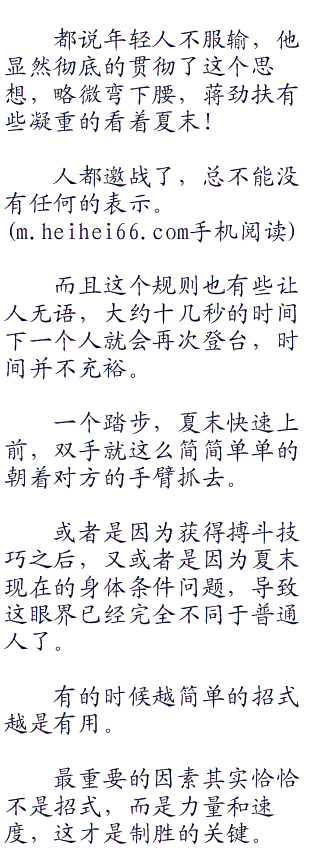 都说年轻人不服输，他
显然彻底的贯彻了这个思
想，略微弯下腰，蒋劲扶有
些凝重的看着夏末！
人都邀战了，总不能没
有任何的表示。
(m.heihei66.com手机阅读)
而且这个规则也有些让
人无语，大约十几秒的时间
下一个人就会再次登台，时
间并不充裕。
一个踏步，夏末快速上
前，双手就这么简简单单的
朝着对方的手臂抓去。
或者是因为获得搏斗技
巧之后，又或者是因为夏末
现在的身体条件问题，导致
这眼界已经完全不同于普通
人了。
有的时候越简单的招式
越是有用。
最重要的因素其实恰恰
不是招式，而是力量和速
度，这才是制胜的关键。